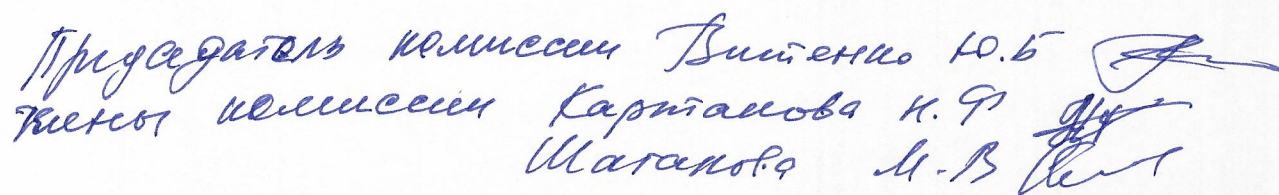 Придседатель комиссии Витенко Ю.Б
члены комиссии Картанова Н.Ф
Шатанова М.В